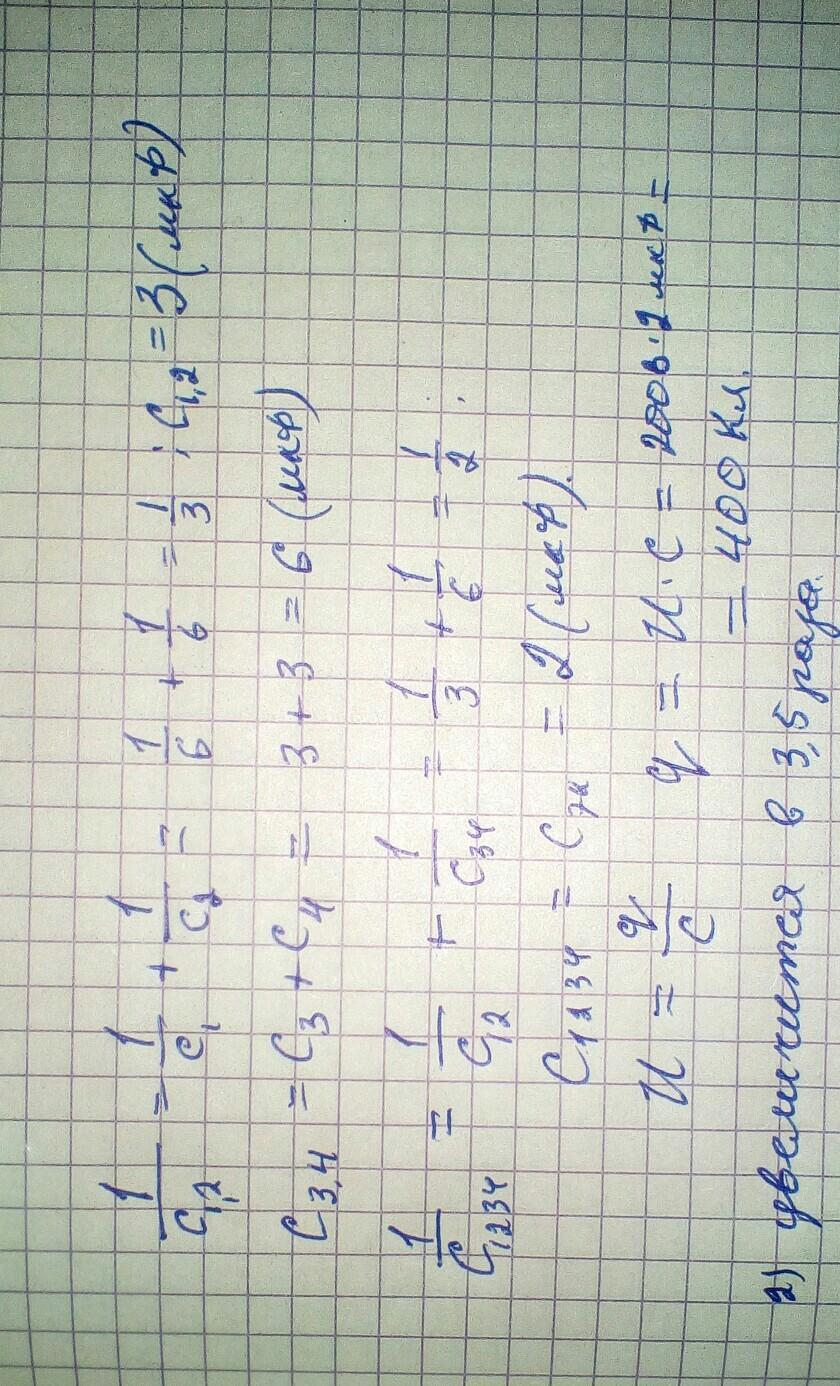 1/C1,2 = 1/C1 + 1/C2 = 1/6 + 1/6 = 1/3 ; C1,2 = 3 (мкф)
C3,4 = C3 + C4 = 3 + 3 = 6 (мкф)
1/C1234 = 1/C12 + 1/C34 = 1/3 + 1/6 = 1/2 .
C1234 = Cэк = 2 (мкф).
U = q/C q = U · C = 200в · 2 мкф =
= 400 Кл.
2) увеличится в 3,5 раза.